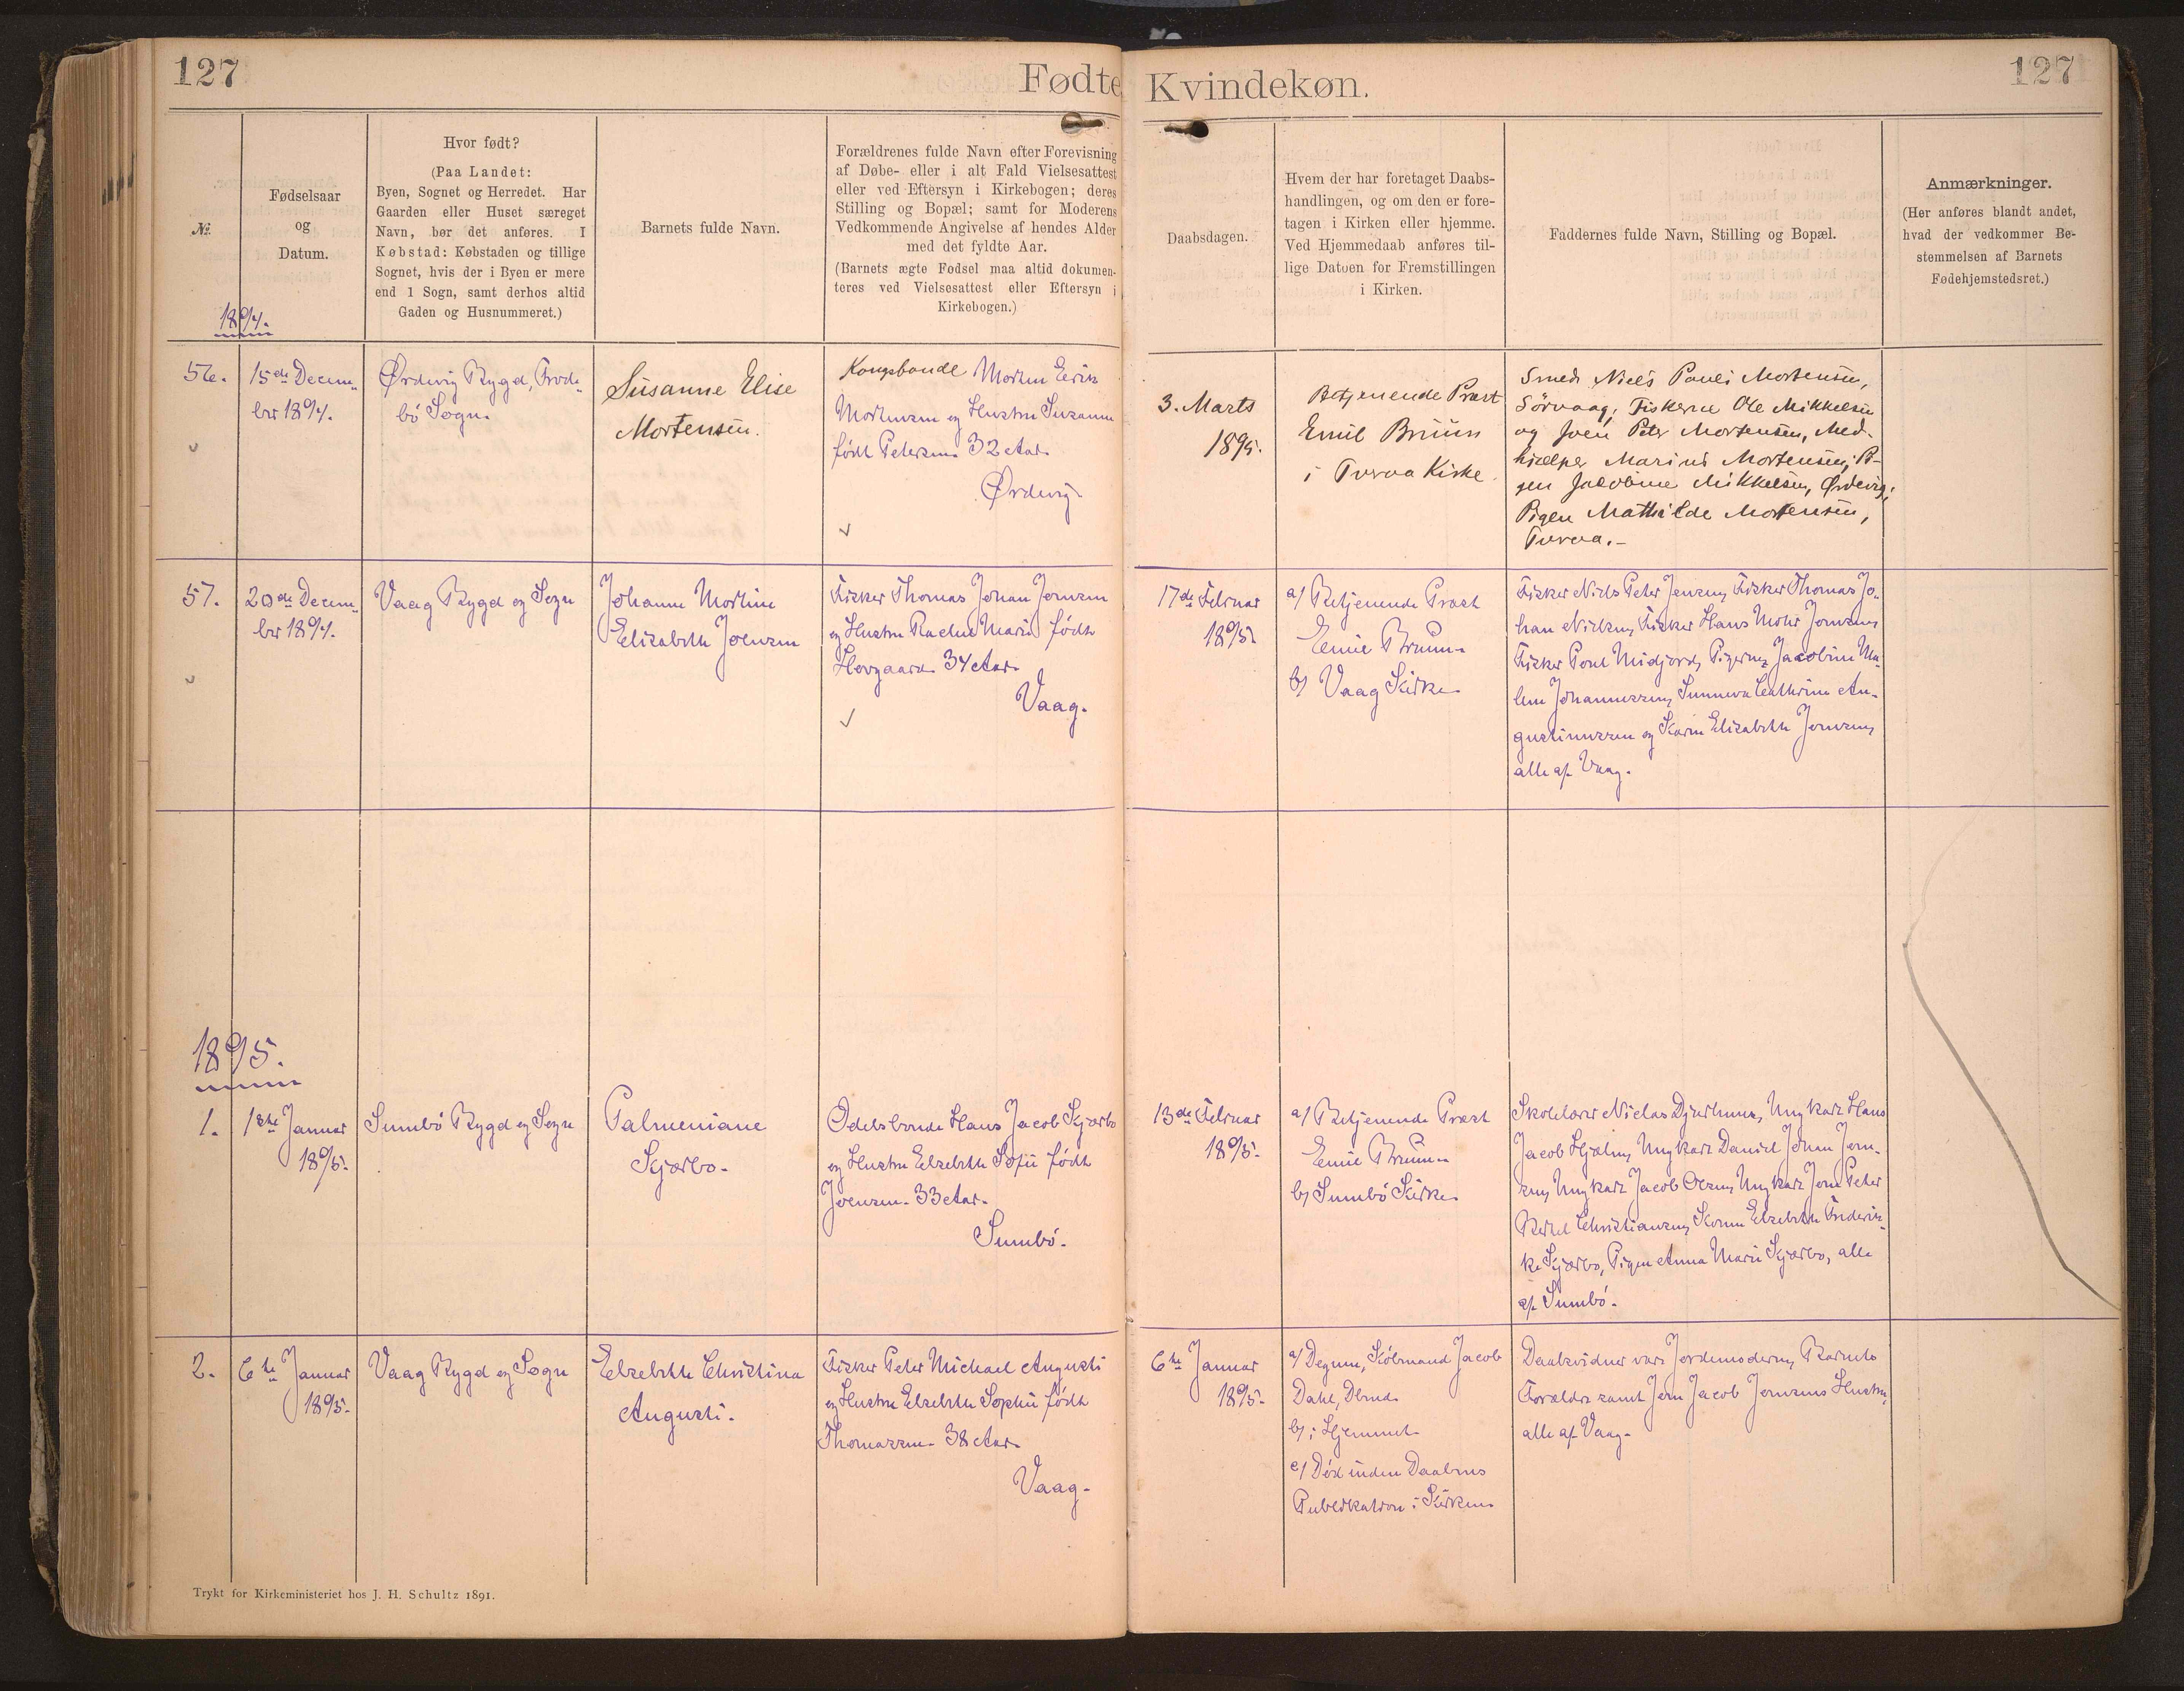 127
Fødte Kvindekøn.
127
№.
Fødselsaar
og
Datum.
Hvor født?
(Paa Landet:
Byen, Sognet og Herredet. Har
Gaarden eller Huset særeget
Navn, bør det anføres. I
Købstad: Købstaden og tillige
Sognet, hvis der i Byen er mere
end 1 Sogn, samt derhos altid
Gaden og Husnummeret.)
Barnets fulde Navn.
Forældrenes fulde Navn efter Forevisning
af Døbe- eller i alt Fald Vielsesattest
eller ved Eftersyn i Kirkebogen; deres
Stilling og Bopæl; samt for Moderens
Vedkommende Angivelse af hendes Alder
med det fyldte Aar.
(Barnets ægte Fødsel maa altid dokumen-
teres ved Vielsesattest eller Eftersyn i
Kirkebogen.)
Daabsdagen.
Hvem der har foretaget Daabs-
handlingen, og om den er fore-
tagen i Kirken eller hjemme.
Ved Hjemmedaab anføres til-
lige Datoen for Fremstillingen
i Kirken.
Faddernes fulde Navn, Stilling og Bopæl.
Anmærkninger.
(Her anføres blandt andet,
hvad der vedkommer Be-
stemmelsen af Barnets
Fødehjemstedsret.)
1894.
56.
15de Decem-
ber 1894.
Ørdevig Bygd, Frode-
bö Sogn.
Susanne Elise
Mortensen.
Kongsbonde Morten Eerik
Mortensen og Hustru Susanne
født Petersen. 32 Aar.
Ørdevig
3. Marts
1895.
Betjenende Præst
Emil Bruun
i Tveraa Kirke
Smeds Niels Pauli Mortensen,
Sörvaag, Fiskerne Ole Mikkelsen
og Joen Peter Mortensen, Med-
hjælper Marius Mortensen, Pi-
gen Jacobine Mikkelsen, Ørdevig,
Pigen Mathilde Mortensen,
Tveraa.-
57.
20de Decem-
ber 1894.
Vaag Bygd og Sogn
Johanne Mortine
Elisabeth Joensen
Fisker Thomas Johan Joensen
og Hustru Rachel Marie født
Hovgaard. 34 Aar.
Vaag.
17de Februar
1895.
a/ Betjenende Præst
Emil Bruun.
b/ Vaag Kirke.
Fisker Niels Peter Jensen, Fisker Thomas Jo-
han Nielsen, Fisker Hans Mohr Joensen,
Fisker Poul Midjord, Pigerne Jacobine Ma-
lene Johannessen, Sunneva Cathrine Au-
gustinussen og Karin Elisabeth Joensen,
alle af Vaag.
1895.
1.
1ste Januar
1895.
Sumbö Bygd og Sogn
Palmeniane
Kjærbo.
Odelsbonde Hans Jacob Kjærbo
og Hustru Elsebeth Sofie født
Joensen. 33 Aar.
Sumbö.
13de Februar
1895.
a/ Betjenende Præst
Emil Bruun.
b/ Sumbö Kirke.
Skolelærer Niclas Djurhuus, Ungkarl Hans
Jacob Hjælm, Ungkarl Daniel Johan Joen-
sen, Ungkarl Jacob Olsen, Ungkarl Joen Peter
Bertel Christiansen, Konen Elsebeth Frederik-
ke Kjærbo, Pigen Anna Marie Kjærbo, alle
af Sumbö.
2.
6te Januar
1895.
Vaag Bygd og Sogn
Elsebeth Christina
Augusti.
Fisker Peter Michael Augusti
og Hustru Elsebeth Sophie født
Thomassen. 38 Aar.
Vaag.
6te Januar
1895.
a/ Degnen, Kjöbmand Jacob
Dahl, Dbmd.
b/ i Hjemmet.
c/ Död inden Daabens
Publikation i Kirken.
Daabsvidner vare Jordemoderen, Barnets
Forældre samt Joen Jacob Joensens Hustru,
alle af Vaag.
Trykt for Kirkeministeriet hos J. H. Schultz 1891.